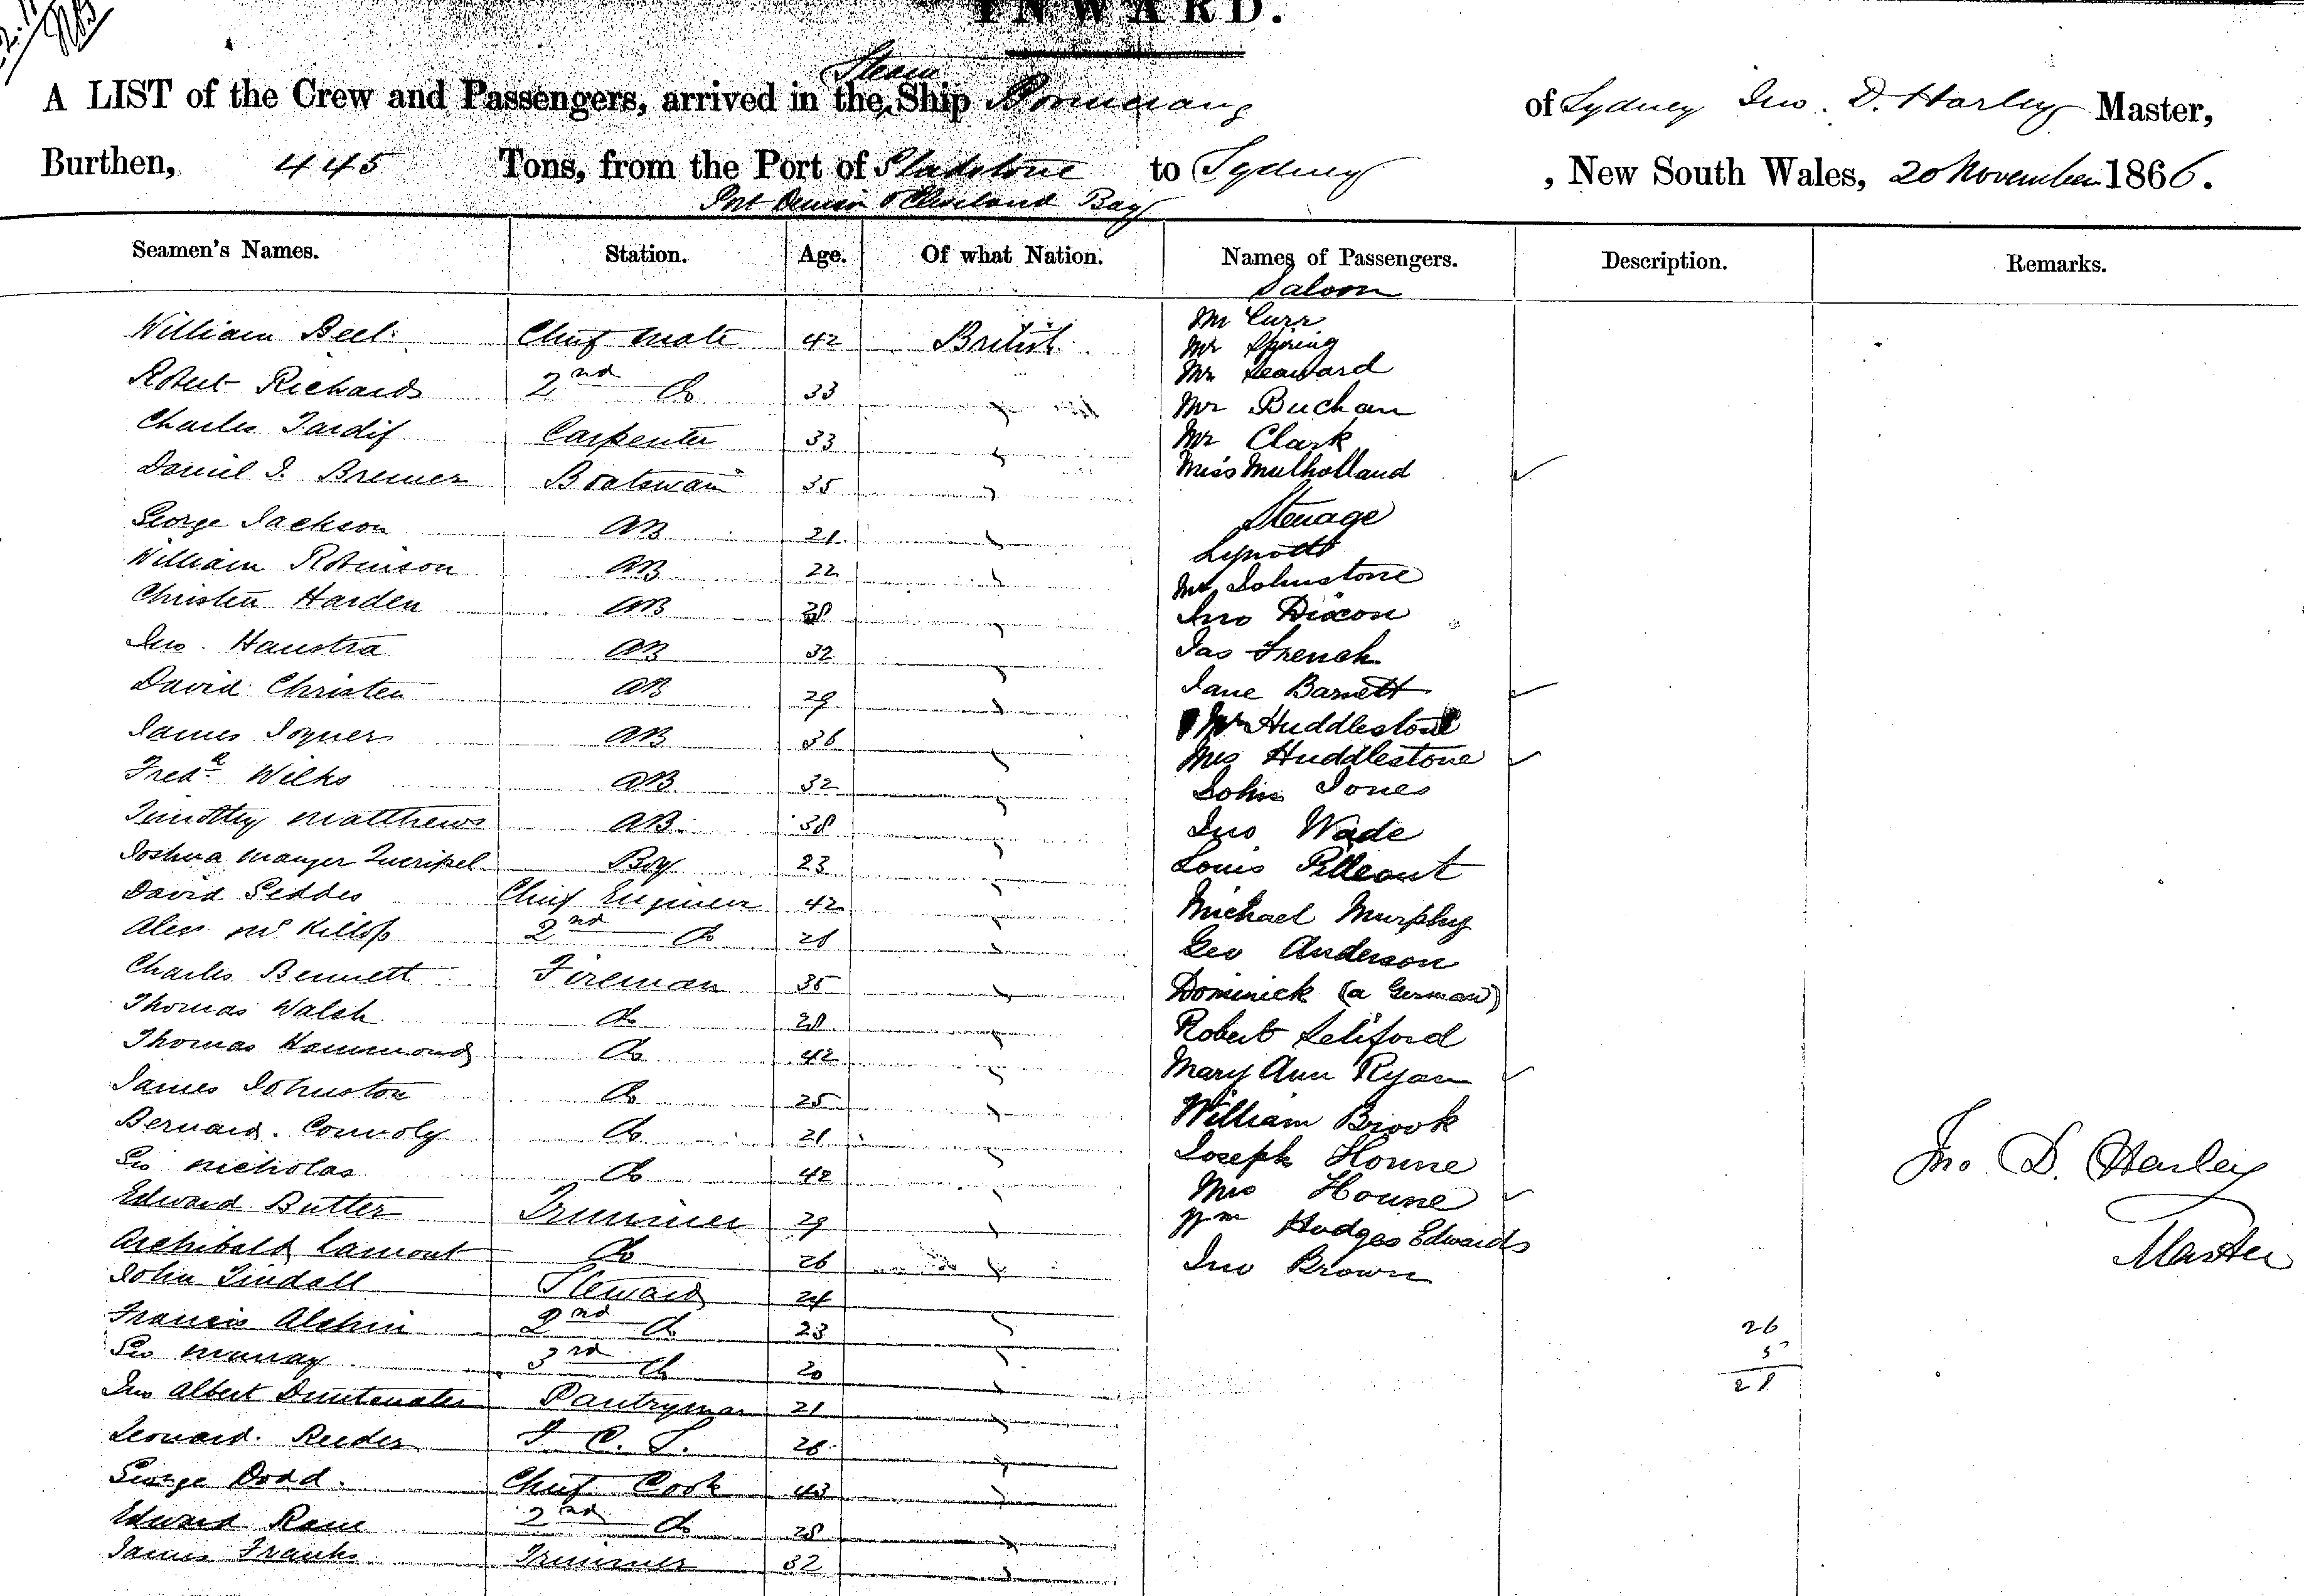 INWARD.
A LIST of the Crew and Passengers, arrived in the Steam Ship Boomerang of Sydney Jno. D. Harley Master,
Burthen, 445 Tons, from the Port of Gladstone to Sydney, New South Wales, 20 November 1866.
Port Denison & Cleveland Bay
Seamen's Names. Station. Age. Of what Nation. Names of Passengers. Description. Remarks.
Saloon
Mr Curr
William Bell Chief Mate 42 British
Mr Spring
Mr Seaward
Robert Richards 2nd Do 33 "
Mr Buchan
Charles Tardif Carpenter 33 "
Mr Clark
Daniel J. Bremer Boatswain 35 "
Miss Mulholland
Steerage
George Jackson AB 21 "
Lynott
William Robinson AB 22 "
Mr Johnstone
Christen Harden AB 28 "
Jno Dixon
Jno. Haustra AB 32 "
Jas French
David Christen AB 29 "
Jane Barnett
James Joyner AB 36 "
Mr Huddlestone
Mrs Huddlestone
Fredk Wilks AB 32 "
John Jones
Timothy Matthews AB 38 "
Jno Wade
Joshua Mauger Queripel Boy 23 "
Louis Pilleaut
David Geddes Chief Engineer 42 "
Michael Murphy
Alex McKillop 2nd Do 26 "
Geo Anderson
Charles Bennett Fireman 35 "
Dominick (a German)
Thomas Walsh Do 28 "
Robert Leliford
Thomas Hammond Do 42 "
Mary Ann Ryan
James Johnston Do 25 "
William Brook
Bernard. Connoly Do 21 "
Joseph Hourne
Geo Nicholas Do 42 "
Mrs Hourne
Edward Butler Trimmer 29 "
Wm Hodges Edwards
Archibald Lamont Do 26 "
Jno Brown
John Tindall Steward 24 "
Francis Alchin 2nd Do 23 "
Geo Murray 3rd Do 20 "
Jno Albert Drinkwater Pantryman 21 "
Leonard. Reeder F. C. S. 26 "
George Dodd. Chief Cook 43 "
Edward Rane 2nd Do 28 "
James Franks Trimmer 32 "
26
5
28
Jno. D. Harley
Master